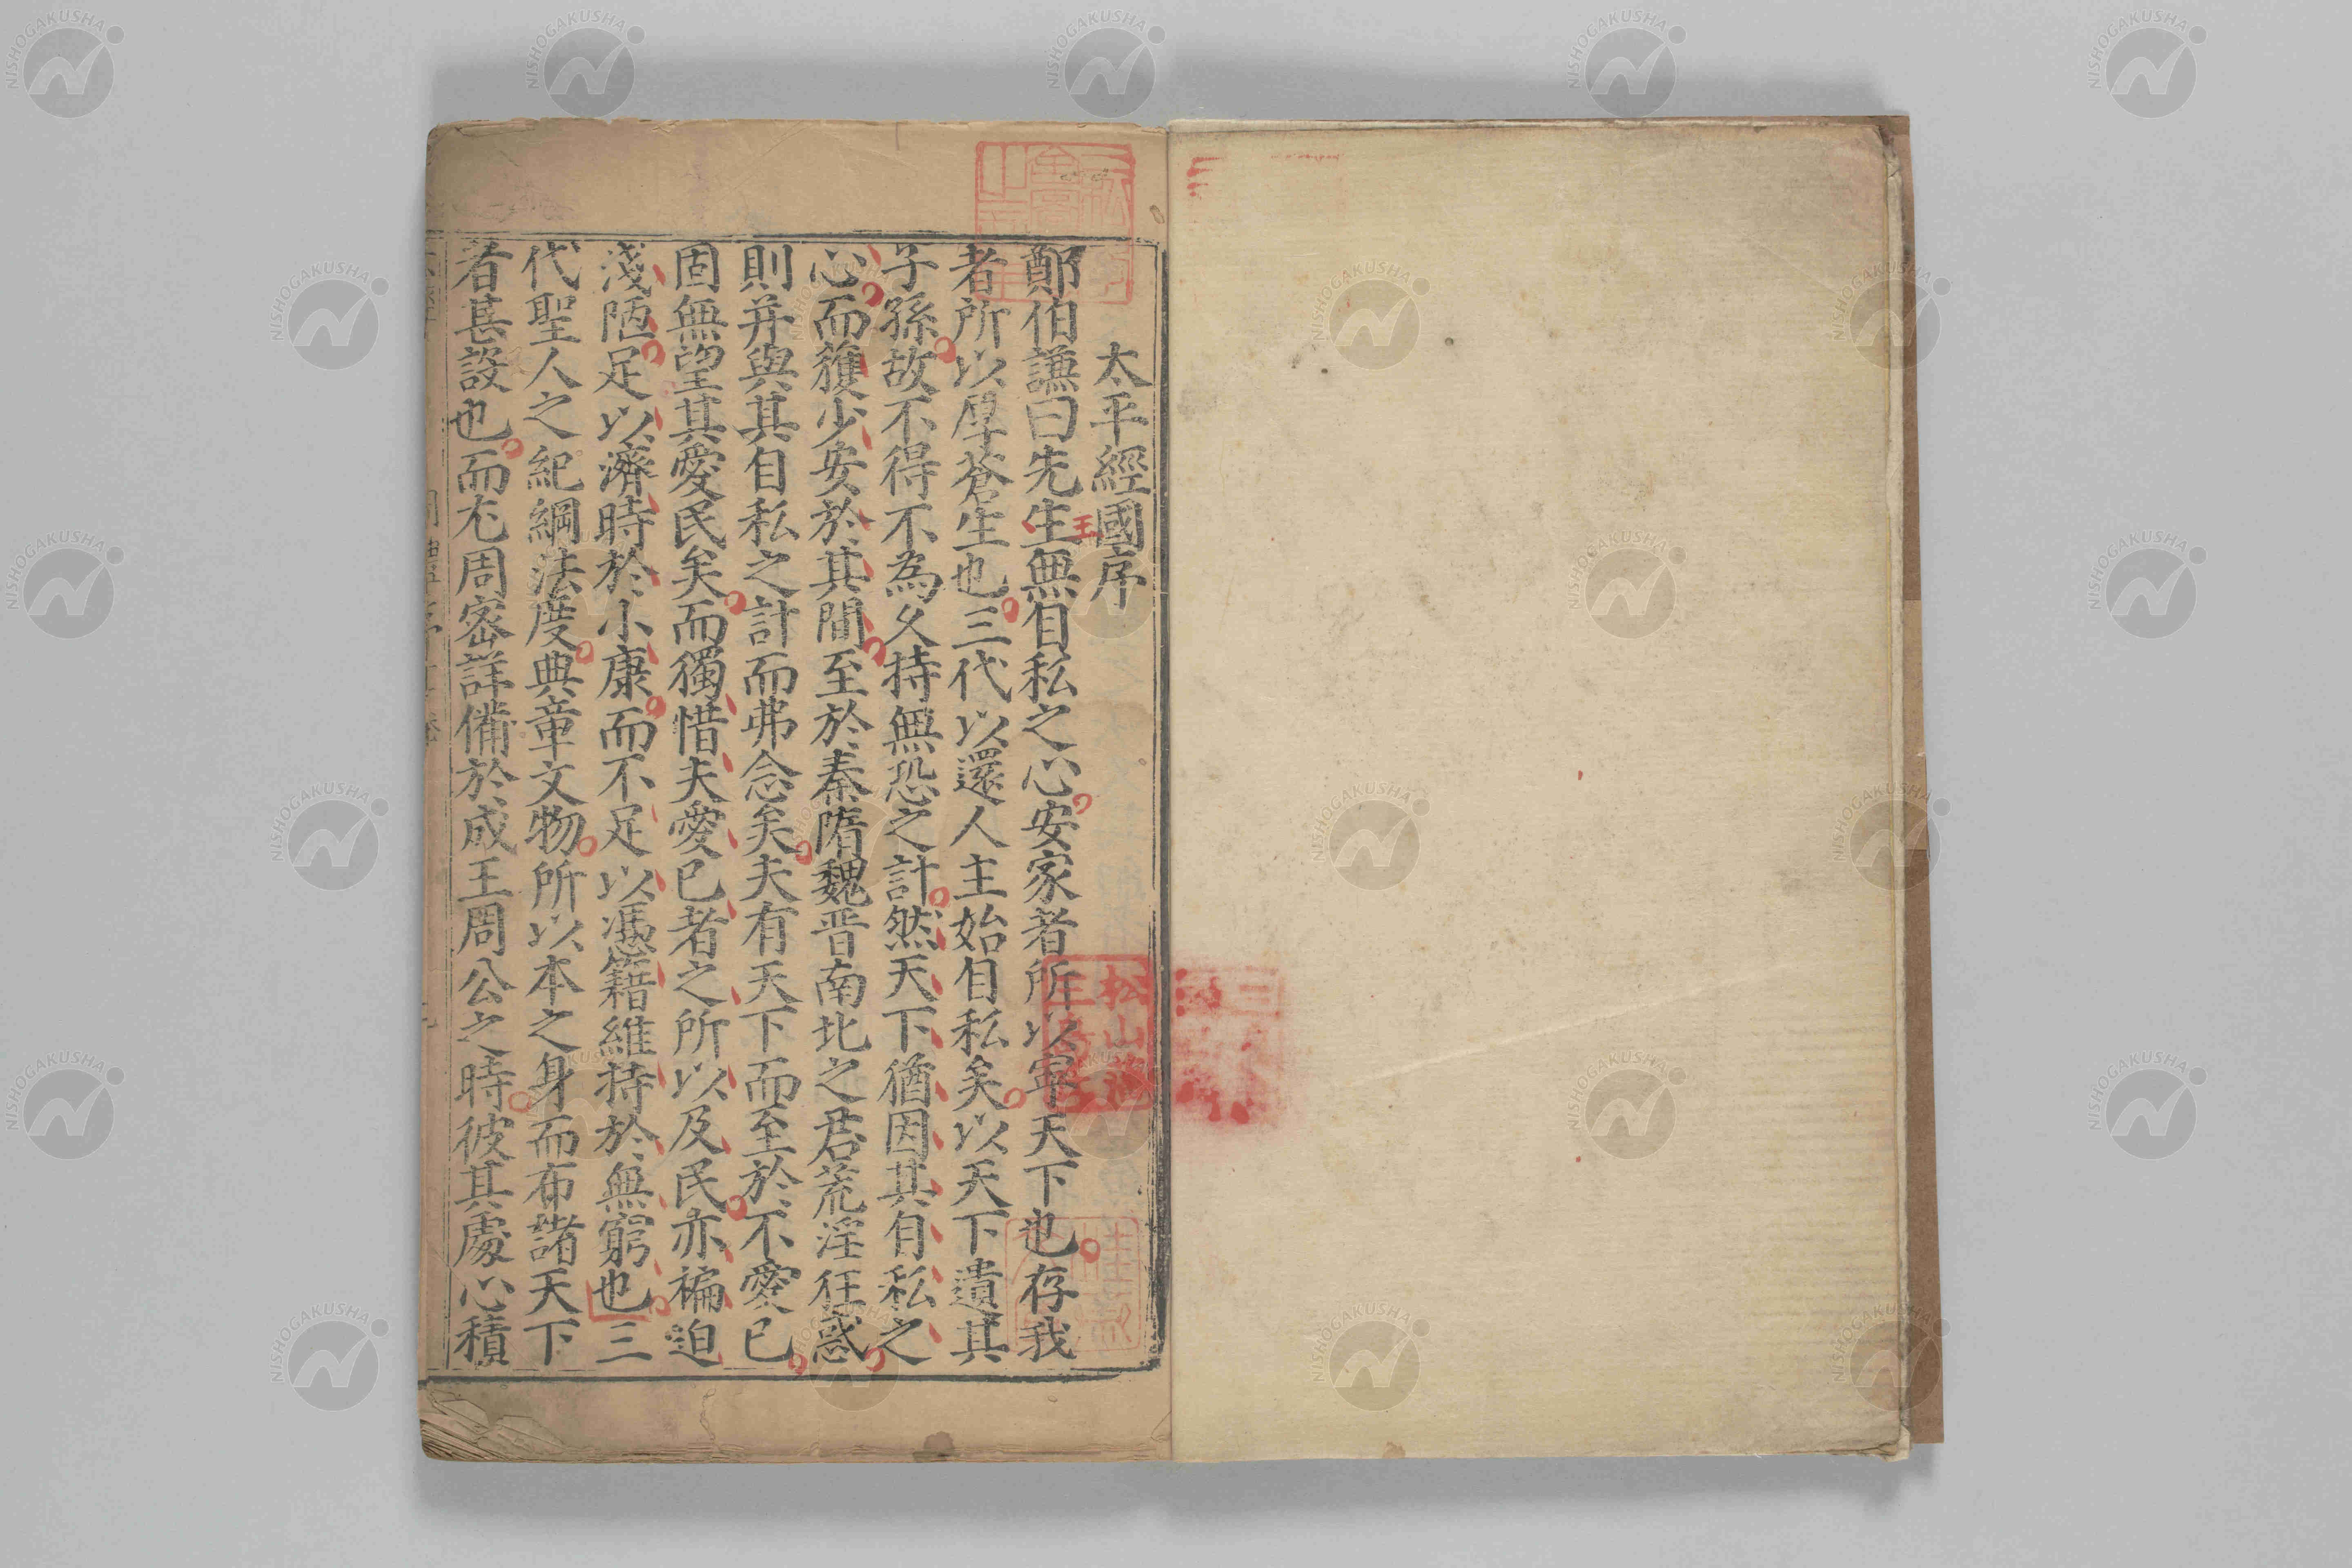 太平經國序
鄭伯謙曰先生無自私之心安家者所以寧天下也存我
王
者所以厚蒼生也三代以還人主始自私矣以天下遺其
子孫故不得不為久持無恐之計然天下猶因其自私之
心而獲少安於其間至於秦隋魏晋南北之君荒淫狂惑
則并與其自私之計而弗念矣夫有天下而至於不愛已
固無望其愛民矣而獨惜夫愛已者之所以及民亦褊迫
淺陋足以濟時於小康而不足以憑籍維持於無窮也三
代聖人之紀綱法度典章文物所以本之身而布諸天下
者甚設也而尤周宻詳備於成王周公之時彼其處心積
NISHOGAKUSHA